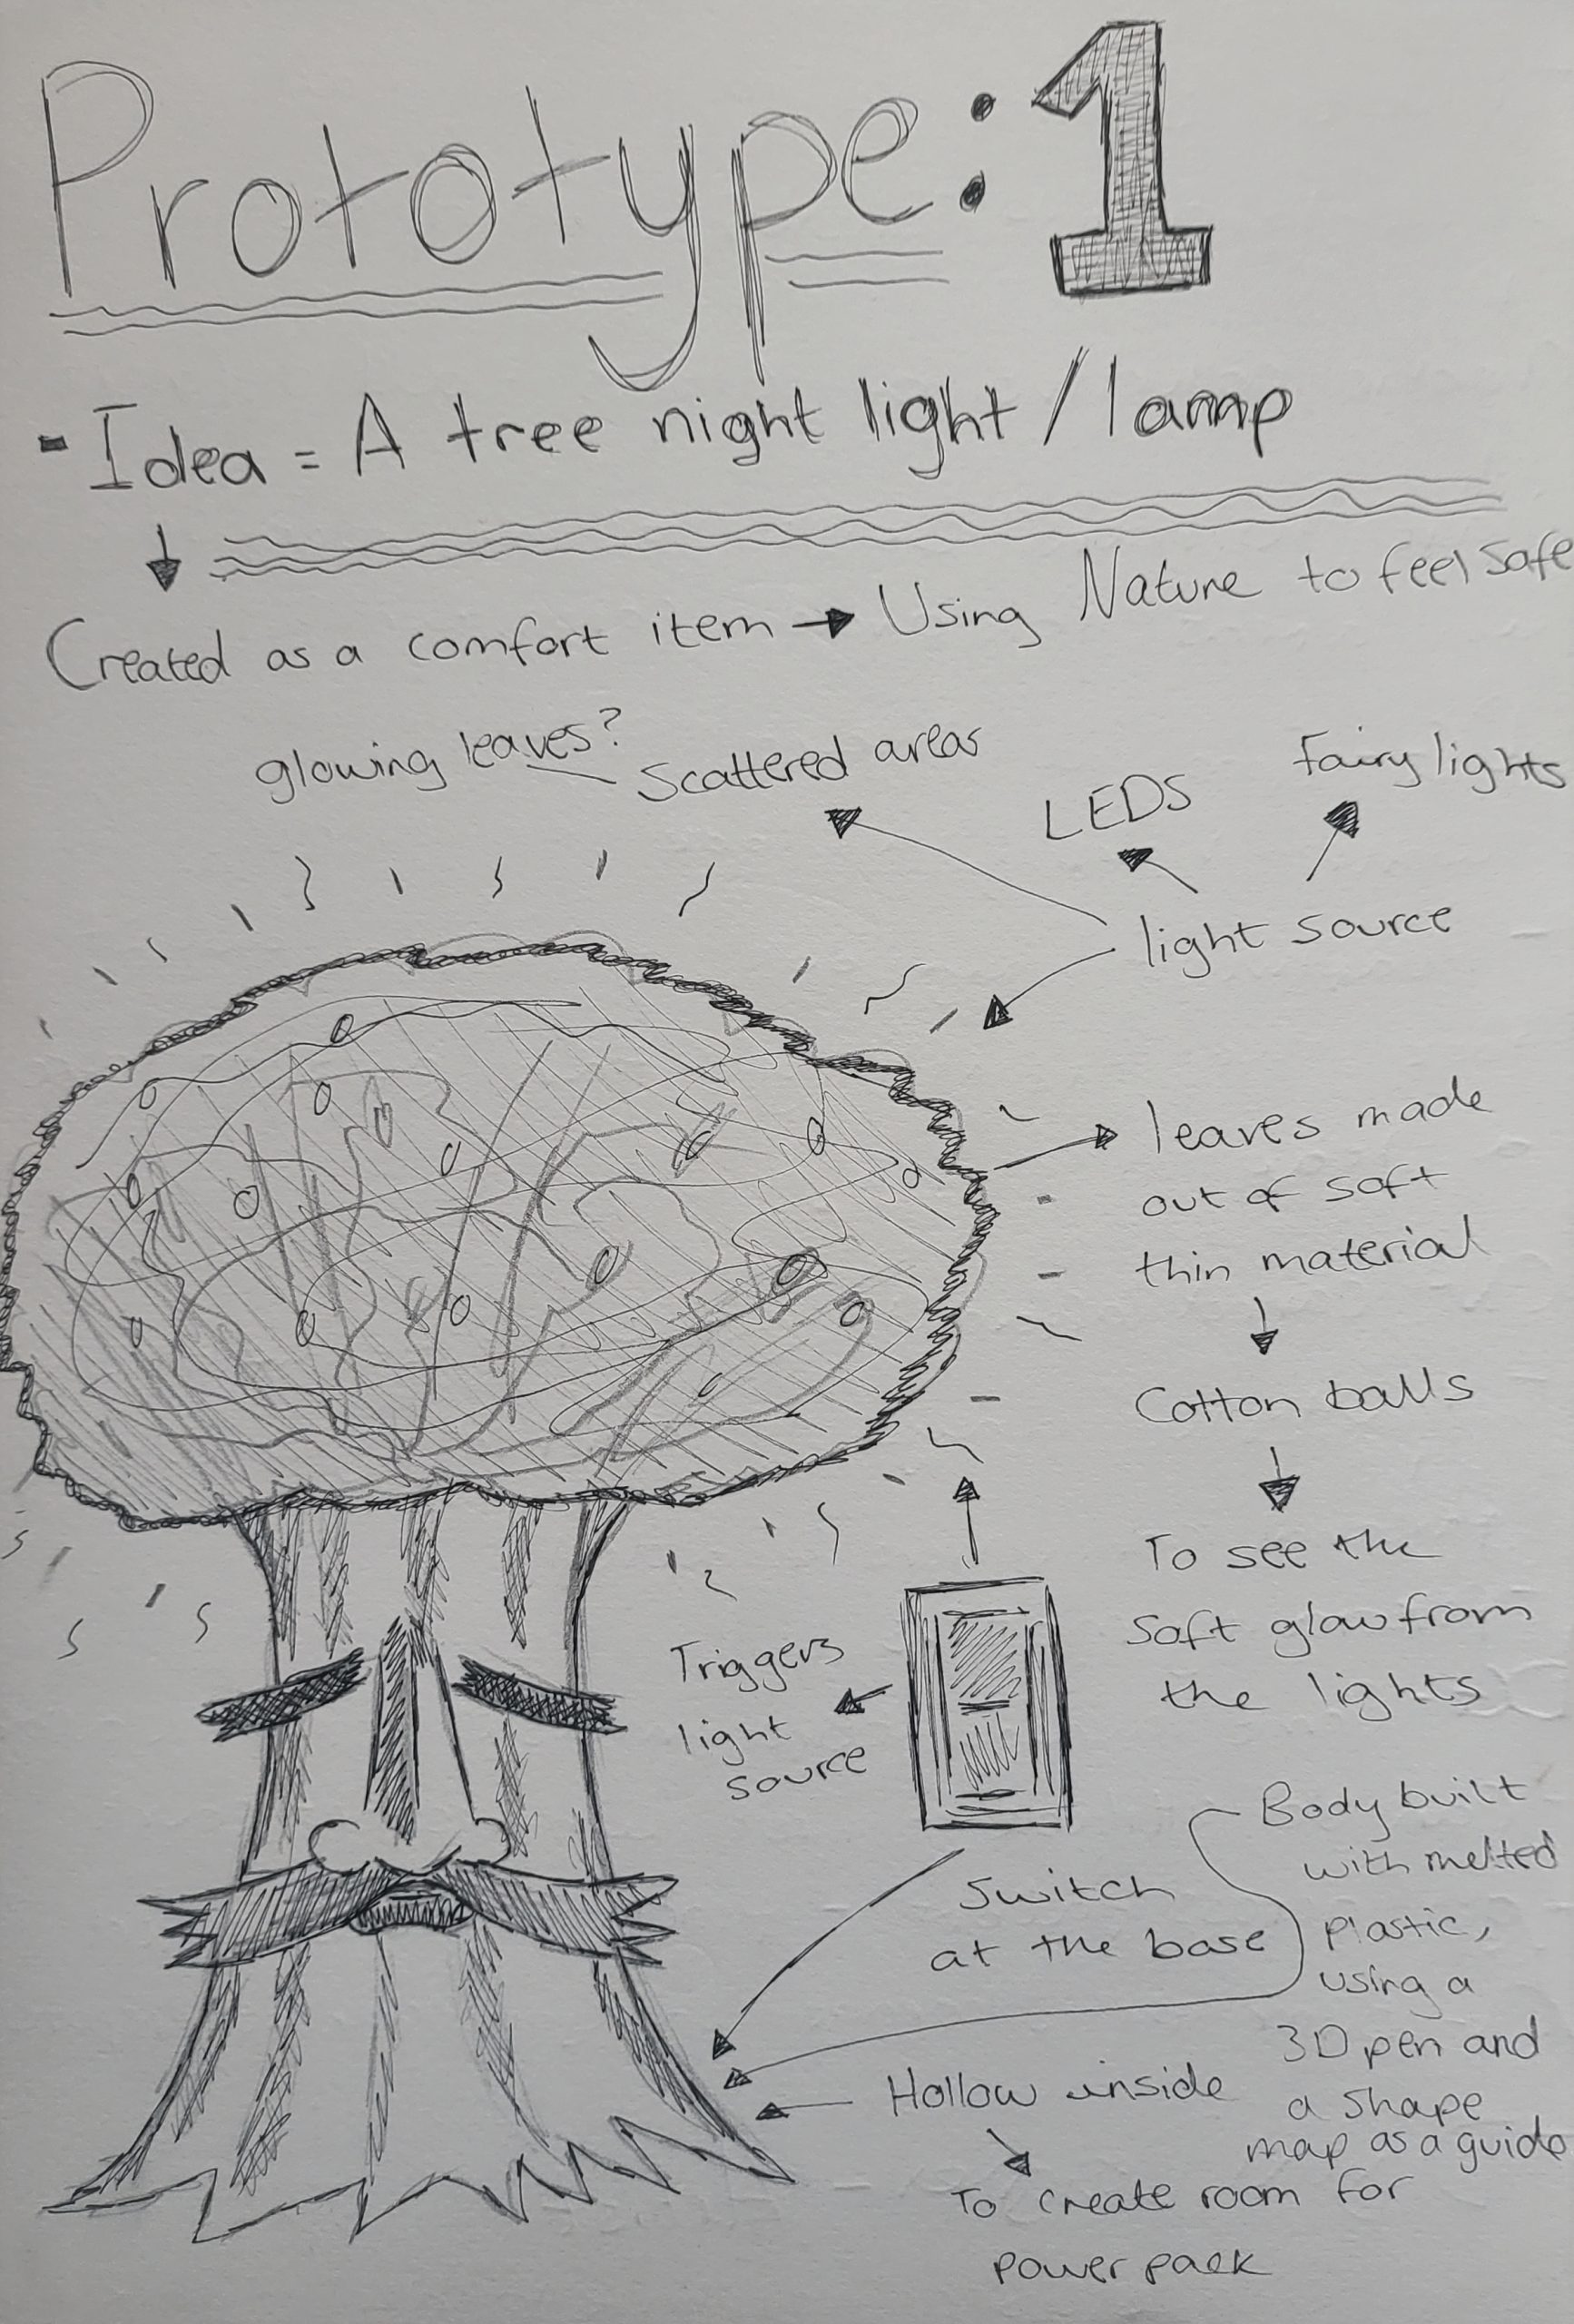 Prototype:1
- Idea = A tree night light / lamp
Created as a comfort item → Using Nature to feel safe
glowing leaves? — Scattered areas
LEDS
Fairy lights
light source
leaves made
out of soft
thin material
Cotton balls
To see the
soft glow from
the lights
Triggers
light
source
Switch
at the base
Body built
with melted
plastic,
using a
3D pen and
a shape
map as a guide
Hollow inside
To create room for
power pack